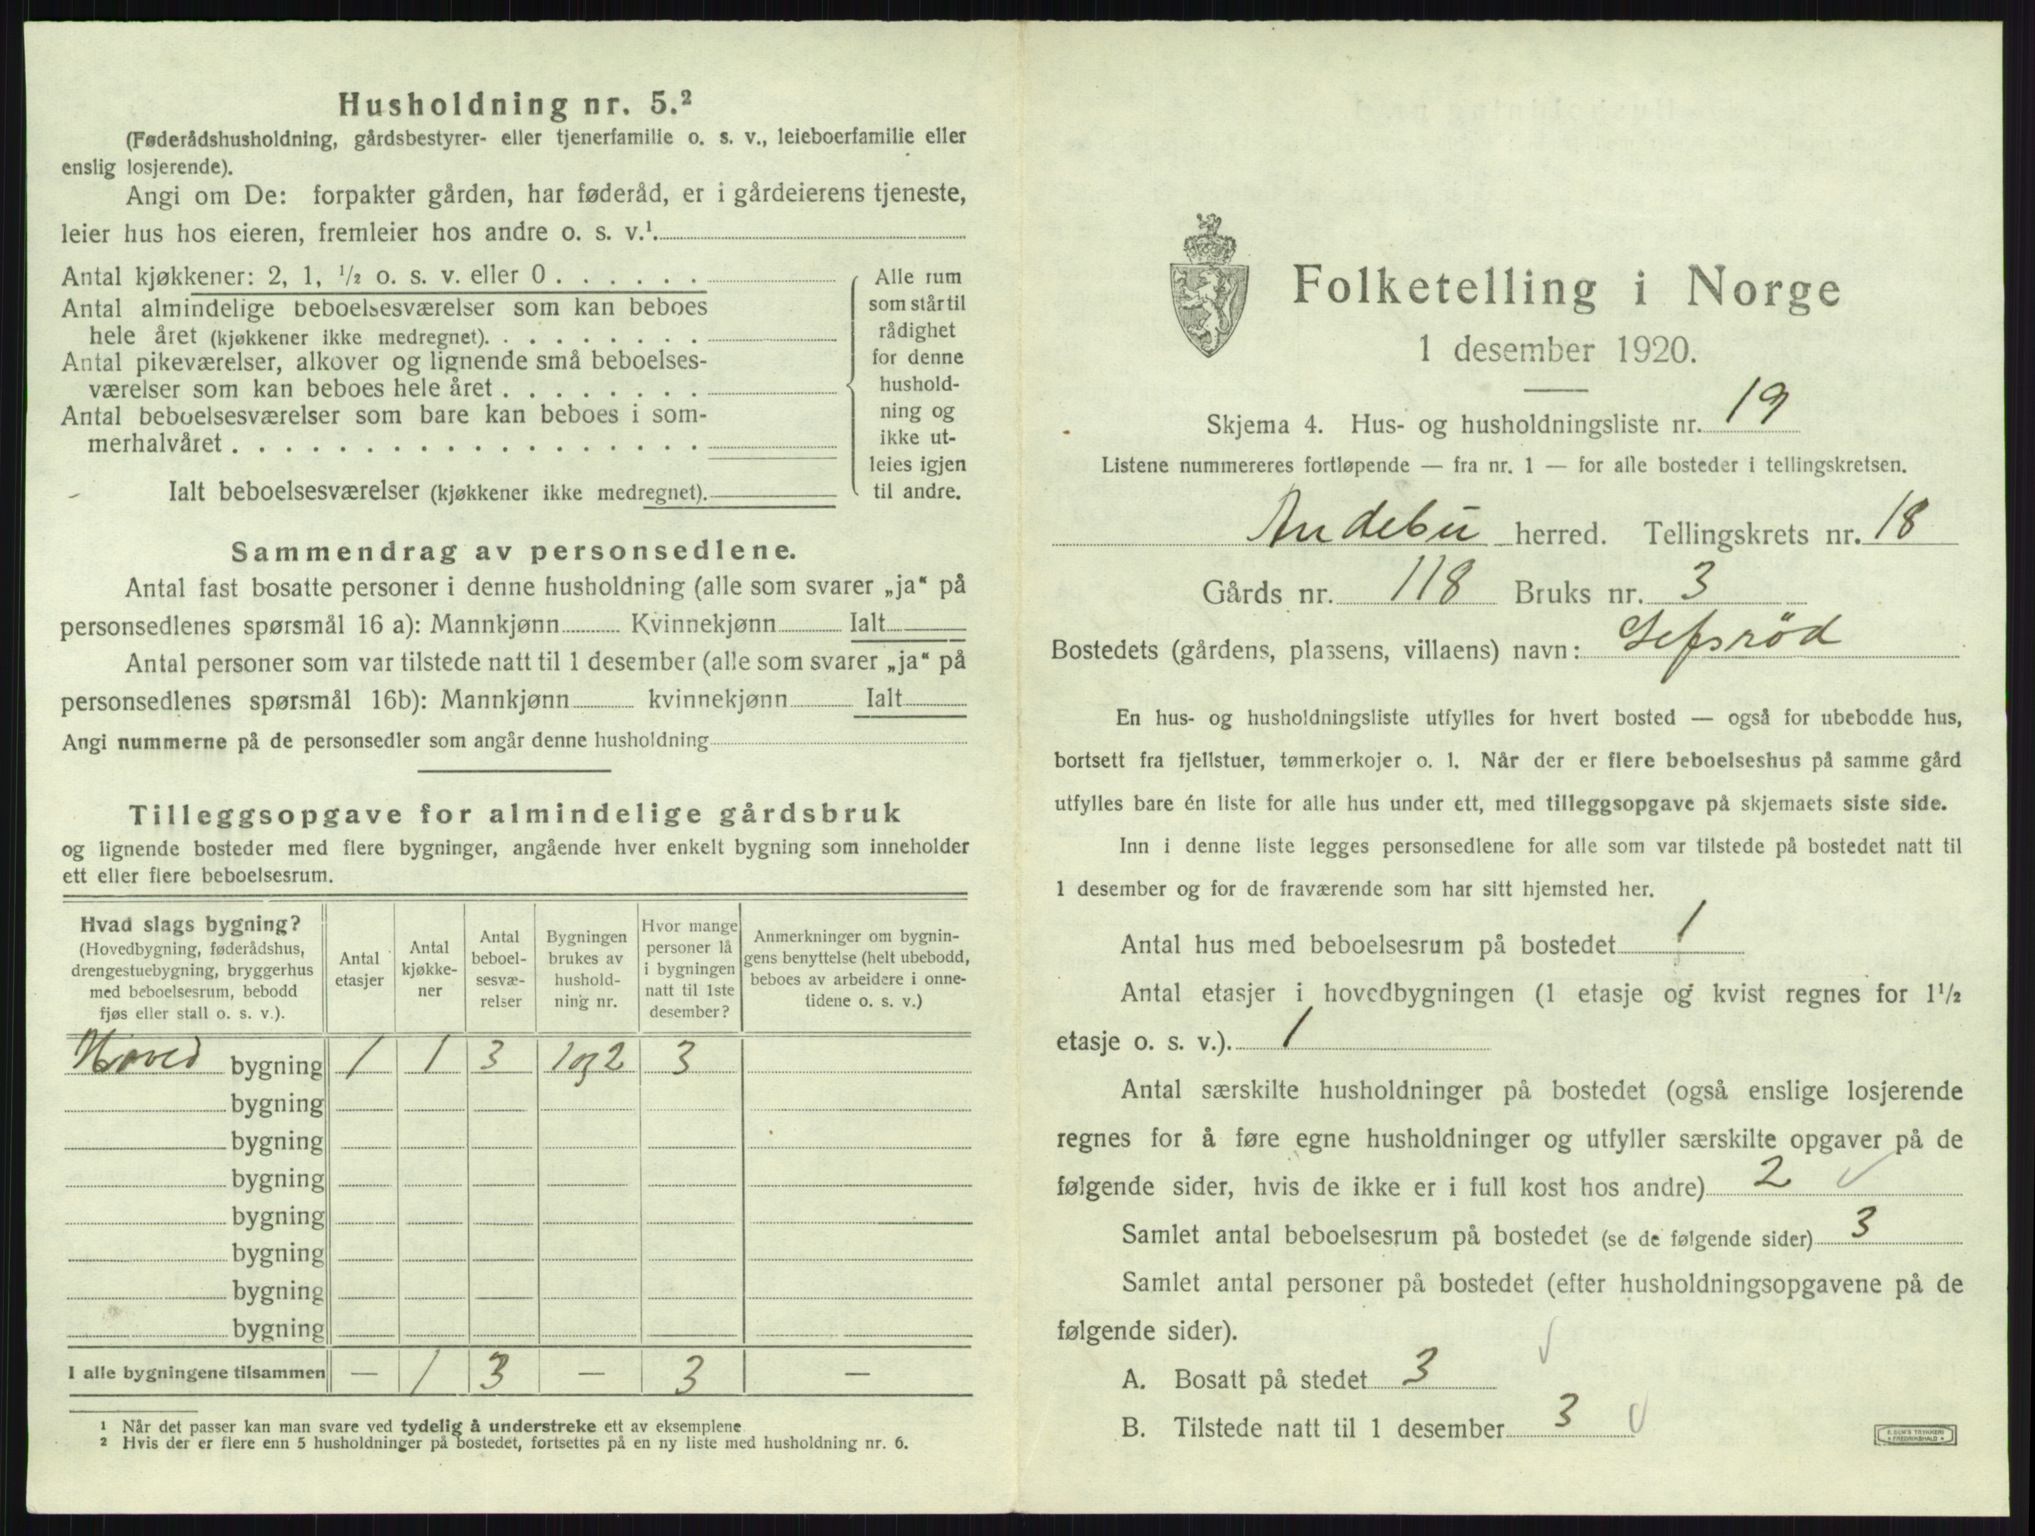 Husholdning nr. 5.²
(Føderådshusholdning, gårdsbestyrer- eller tjenerfamilie o. s. v., leieboerfamilie eller
enslig losjerende).
Angi om De: forpakter gården, har føderåd, er i gårdeierens tjeneste,
leier hus hos eieren, fremleier hos andre o. s. v.¹
Antal kjøkkener: 2, 1, ½ o. s. v. eller 0 . . . . . .
Antal almindelige beboelsesværelser som kan beboes
hele året (kjøkkener ikke medregnet). . . . . . . . .
Antal pikeværelser, alkover og lignende små beboelses-
værelser som kan beboes hele året . . . . . . . .
Antal beboelsesværelser som bare kan beboes i som-
merhalvåret . . . . . . . . . . . . . . . . .
Ialt beboelsesværelser (kjøkkener ikke medregnet).
Alle rum
som står til
rådighet
for denne
hushold-
ning og
ikke ut-
leies igjen
til andre.
Sammendrag av personsedlene.
Antal fast bosatte personer i denne husholdning (alle som svarer „ja“ på
personsedlenes spørsmål 16 a): Mannkjønn Kvinnekjønn Ialt
Antal personer som var tilstede natt til 1 desember (alle som svarer „ja“ på
personsedlenes spørsmål 16b): Mannkjønn kvinnekjønn Ialt
Angi nummerne på de personsedler som angår denne husholdning
Tilleggsopgave for almindelige gårdsbruk
og lignende bosteder med flere bygninger, angående hver enkelt bygning som inneholder
ett eller flere beboelsesrum.
Hvad slags bygning?
(Hovedbygning, føderådshus,
drengestuebygning, bryggerhus
med beboelsesrum, bebodd
fjøs eller stall o. s. v.).
Antal
etasjer
Antal
kjøkke-
ner
Antal
beboel-
sesvæ-
relser
Bygningen
brukes av
hushold-
ning nr.
Hvor mange
personer lå
i bygningen
natt til 1ste
desember?
Anmerkninger om bygnin-
gens benyttelse (helt ubebodd,
beboes av arbeidere i onne-
tidene o. s. v.)
Hoved bygning 1 1 3 1 og 2 3
bygning
bygning
bygning
bygning
bygning
bygning
bygning
I alle bygningene tilsammen — 1 3 — 3 —
¹ Når det passer kan man svare ved tydelig å understreke ett av eksemplene.
² Hvis der er flere enn 5 husholdninger på bostedet, fortsettes på en ny liste med husholdning nr. 6.
Folketelling i Norge
1 desember 1920.
Skjema 4. Hus- og husholdningsliste nr. 19
Listene nummereres fortløpende — fra nr. 1 — for alle bosteder i tellingskretsen.
Andebu herred. Tellingskrets nr. 18
Gårds nr. 118 Bruks nr. 3
Bostedets (gårdens, plassens, villaens) navn: Sefsrød
En hus- og husholdningsliste utfylles for hvert bosted — også for ubebodde hus,
bortsett fra fjellstuer, tømmerkojer o. l. Når der er flere beboelseshus på samme gård
utfylles bare én liste for alle hus under ett, med tilleggsopgave på skjemaets siste side.
Inn i denne liste legges personsedlene for alle som var tilstede på bostedet natt til
1 desember og for de fraværende som har sitt hjemsted her.
Antal hus med beboelsesrum på bostedet 1
Antal etasjer i hovedbygningen (1 etasje og kvist regnes for 1½
etasje o. s. v.). 1
Antal særskilte husholdninger på bostedet (også enslige losjerende
regnes for å føre egne husholdninger og utfyller særskilte opgaver på de
følgende sider, hvis de ikke er i full kost hos andre) 2
Samlet antal beboelsesrum på bostedet (se de følgende sider) 3
Samlet antal personer på bostedet (efter husholdningsopgavene på de
følgende sider).
A. Bosatt på stedet 3
B. Tilstede natt til 1 desember 3